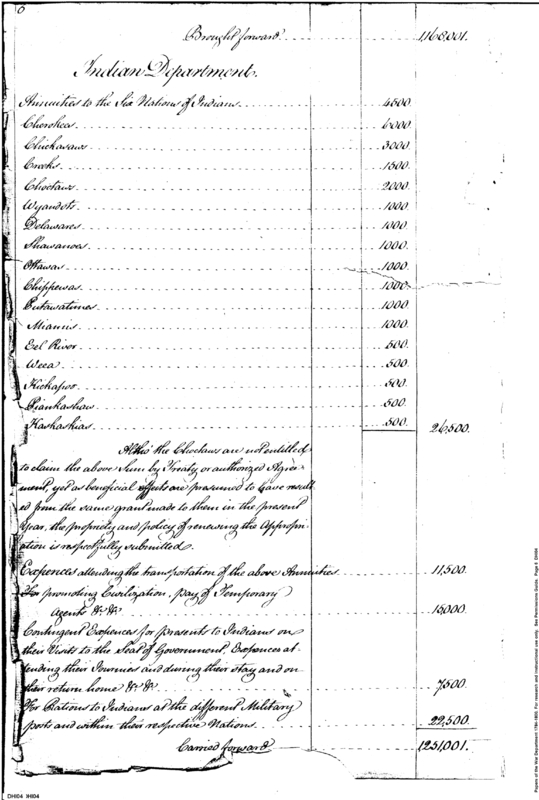 6
Brought forward 1168,001.
Indian Department.
Annuities to the Six Nations of Indians 4500.
Cherokees 6000
Chickasaws 3000
Creeks 1500
Choctaws 2000
Wyandots 1000
Delawares 1000
Shawanoes 1000.
Ottawas 1000.
Chippewas 1000.
Putawatimes 1000.
Miamis 1000.
Eel River 500.
Weea 500.
Kickapoo 500.
Piankashaw 500.
Kaskaskias 500. 26,500.
Altho' the Choctaws are not entitled
to claim the above Sum by Treaty or authorized Agree-
ment, yet as beneficial effects are presumed to have result-
ed from the same grant made to them in the present
Year, the propriety and policy of renewing the Appropri-
ation is respectfully submitted.
Expences attending the transportation of the above Annuities 11,500.
For promoting Civilization, pay of Temporary
Agents &c. &c. 15,000.
Contingent Expences for presents to Indians on
their Visits to the Seat of Government, Expences at-
tending their Journies and during their stay and on
their return home &c. &c. 7,500
For Rations to Indians at the different Military
posts and within their respective Nations 22,500.
Carried forward 1251,001.
DHI04 IHI04
Papers of the War Department 1784-1800. For research and instructional use only. See Permissions Guide. Page 6 DHI04